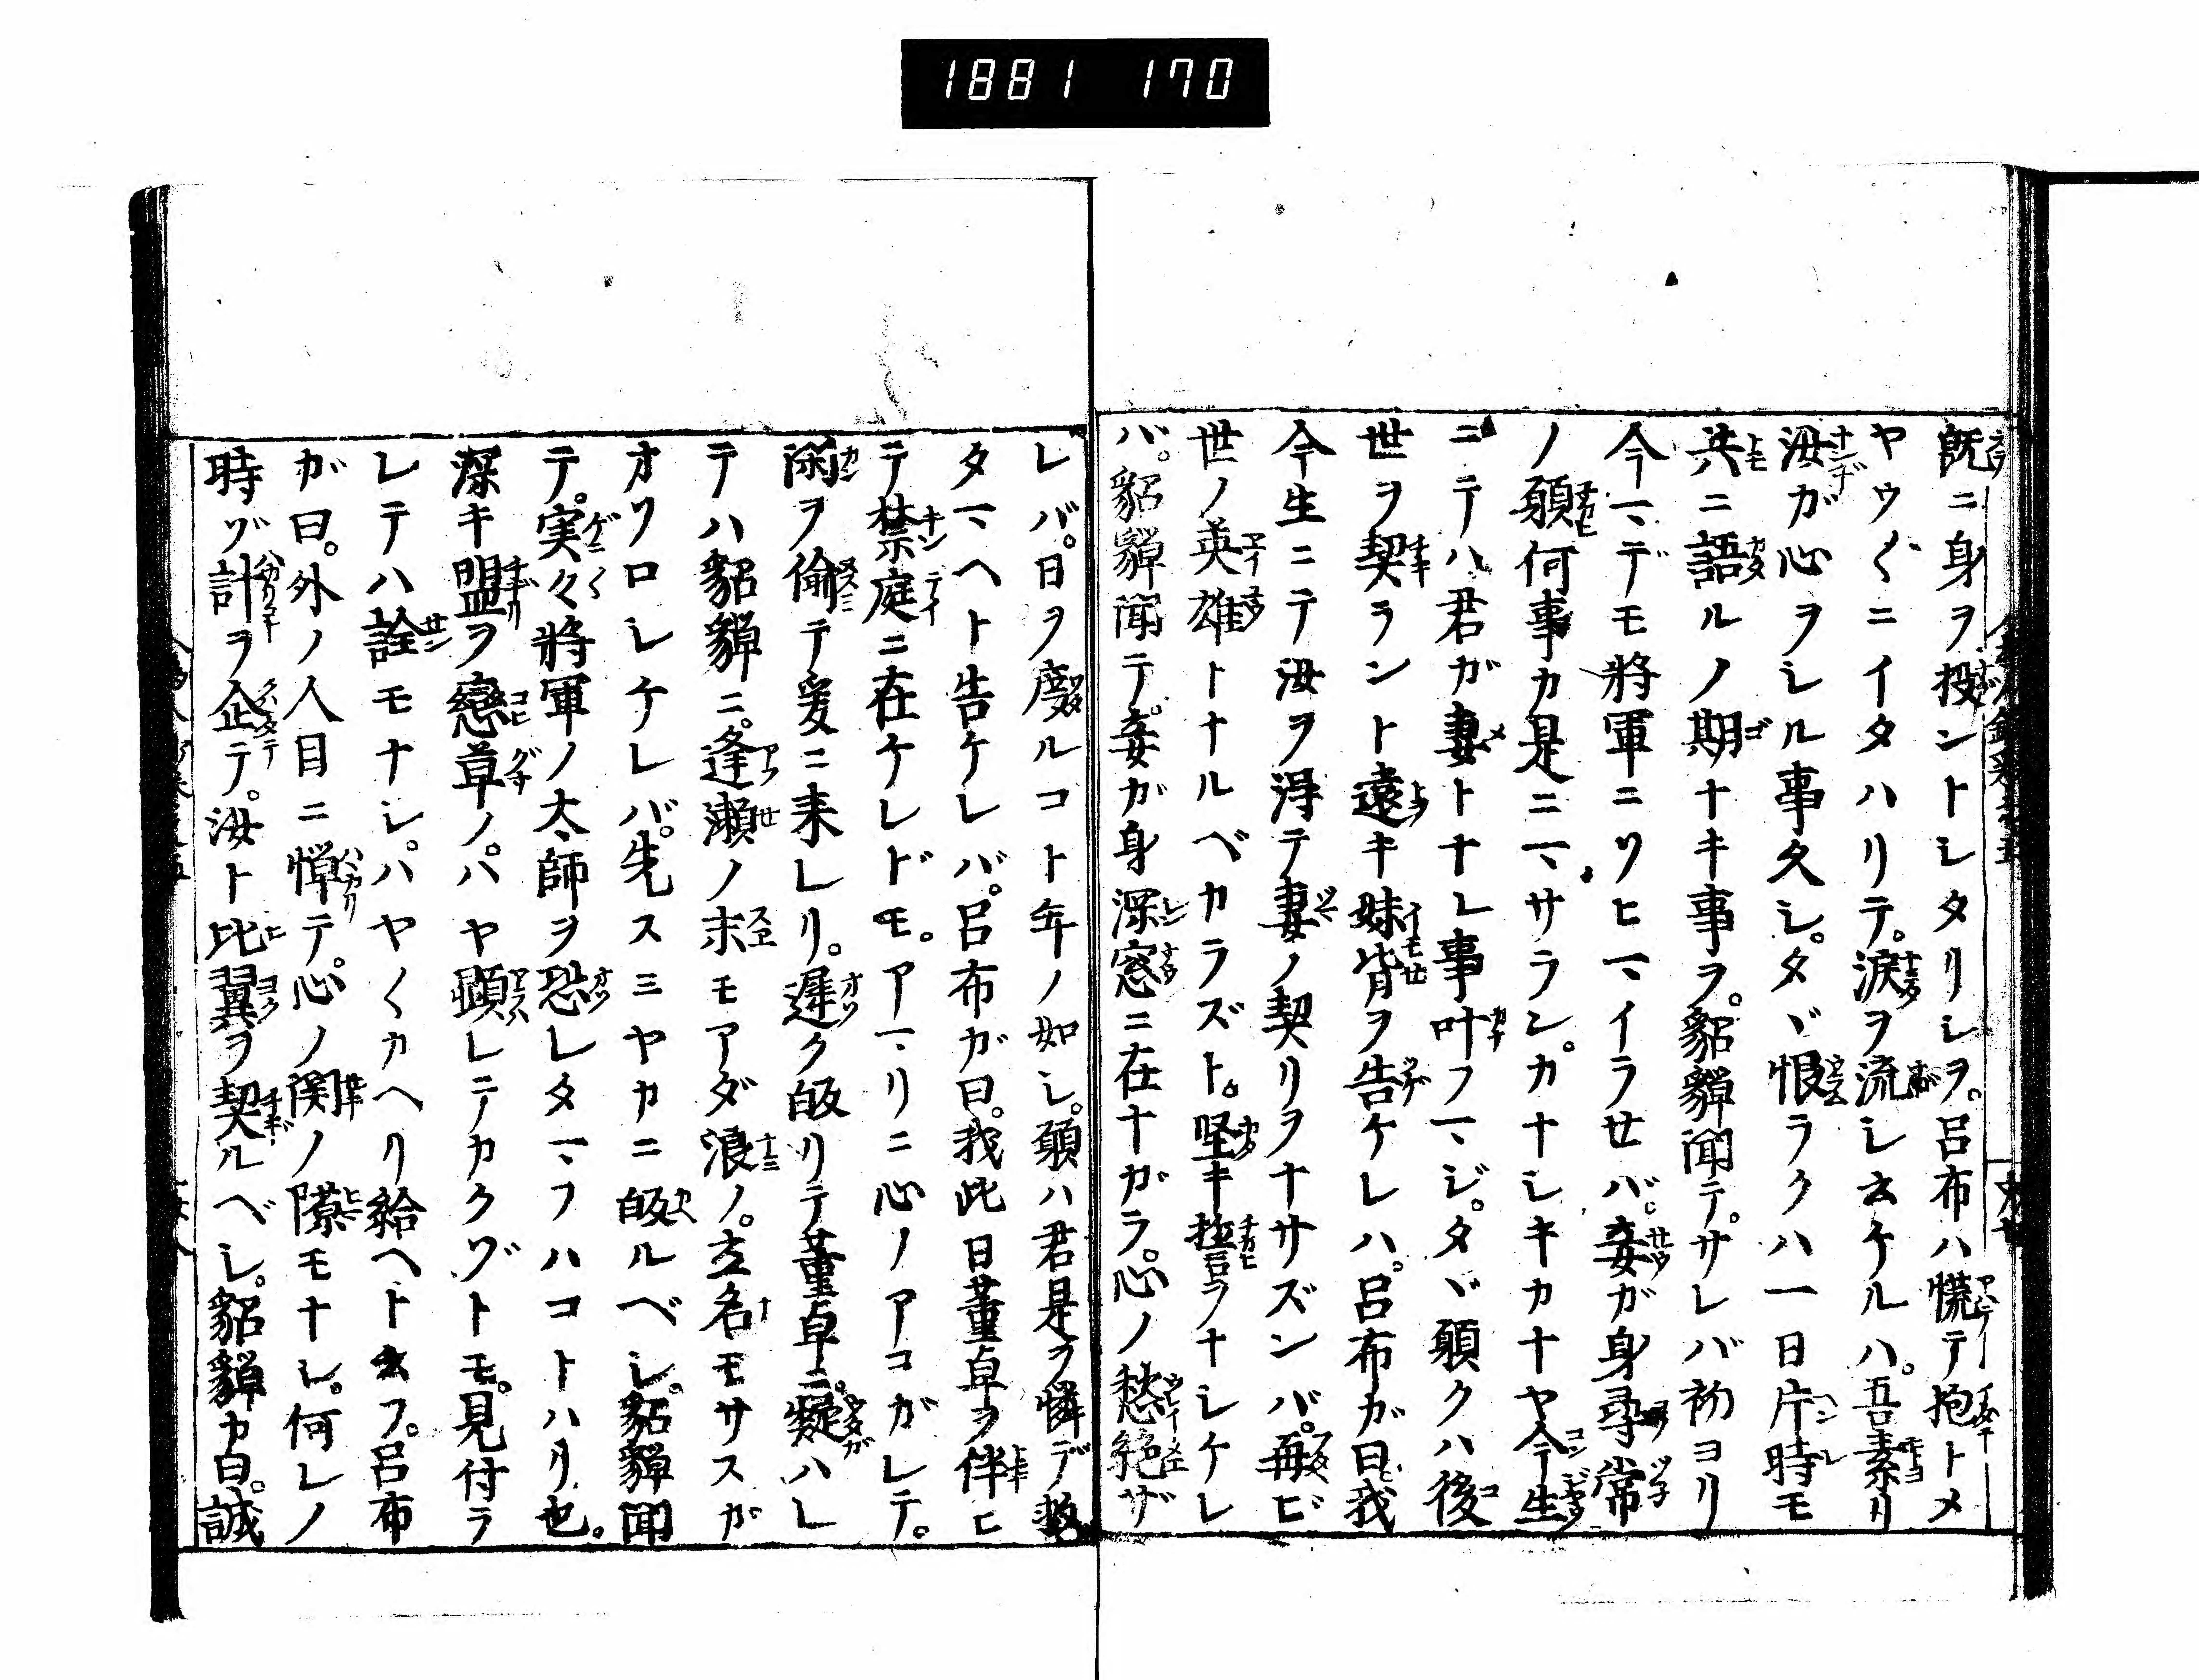 1881 170
既ニ身ヲ投ントシタリシヲ。呂布ハ慌テ抱トメ
ヤウ〱ニイタハリテ。涙ヲ流シ云ケルハ。吾素リ
汝ガ心ヲシル事久シ。タヾ恨ラクハ一日片時モ
共ニ語ルノ期ナキ事ヲ。貂蟬聞テ。サレバ初ヨリ
今マデモ將軍ニソヒマイラセバ。妾ガ身尋常
ノ願何事カ是ニマサラン。カナシキカナヤ今生
ニテハ君ガ妻トナレ事叶フマジ。タヾ願クハ後
世ヲ契ラント遠キ妹背ヲ告ケレハ。呂布ガ曰我
今生ニテ汝ヲ淂テ妻ノ契リヲナサズンバ。再ビ
世ノ英雄トナルベカラズト。堅キ誓ヲナシケレ
バ。貂蟬聞テ。妾ガ身深窓ニ在ナガラ。心ノ愁絶ザ
レバ。日ヲ度ルコト年ノ如シ。願ハ君是ヲ憐デ救
タマヘト告ケレバ。呂布ガ曰。我此日董卓ヲ伴ヒ
テ禁庭ニ在ケレドモ。アマリニ心ノアコガレテ。
閑ヲ偸テ爰ニ来レリ。遲ク皈リテ董卓ニ。疑ハレ
テハ貂蟬ニ。逢瀬ノ末モアダ浪ノ。立名モサスガ
オソロシケレバ。先スミヤカニ皈ルベシ。貂蟬聞
テ。実々將軍ノ太師ヲ恐レタマフハコトハリ也。
深キ盟ヲ戀草ノ。ハヤ顕レテカクゾトモ。見付ラ
レテハ詮モナシ。ハヤ〱カヘリ給ヘト云フ。呂布
ガ曰。外ノ人目ニ憚テ。心ノ関ノ隙モナシ。何レノ
時ゾ計ヲ企テ。汝ト比翼ヲ契ルベシ。貂蟬カ曰。誠